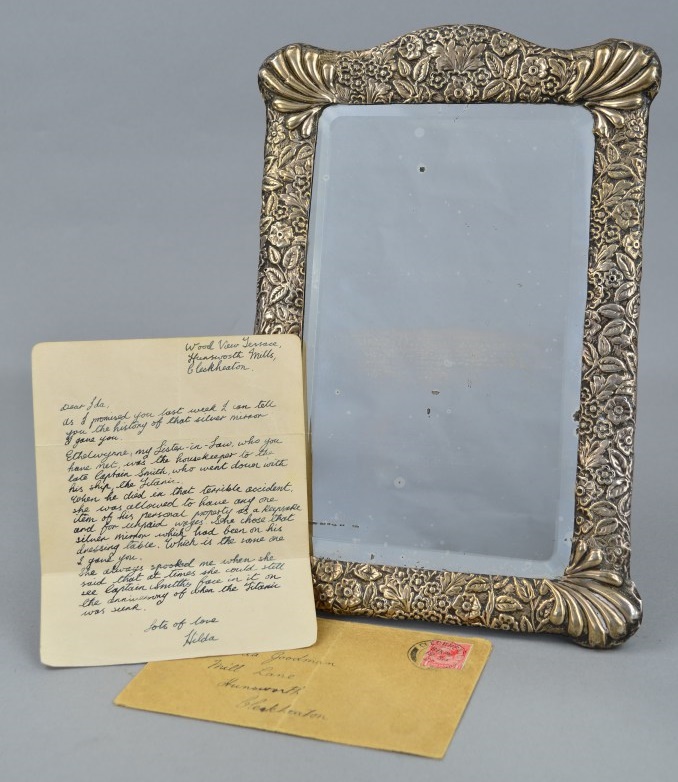 Wood View Terrace,
Hunsworth Mills,
Cleckheaton.
Dear Ida,
As I promised you last week I can tell
you the history of that silver mirror
I gave you.
Ethelwyne, my Sister-in-Law, who you
have met, was the housekeeper to the
late Captain Smith, who went down with
his ship, the Titanic.
When he died in that terrible accident,
she was allowed to have any one
item of his personal property as a keepsake
and for unpaid wages. She chose that
silver mirror which had been on his
dressing table. Which is the same one
I gave you.
She always spooked me when she
said that at times she could still
see Captain Smiths face in it on
the anniversary of when the Titanic
was sunk.
Lots of love
Hilda
Goodman
Mill Lane
Hunsworth
Cleckheaton